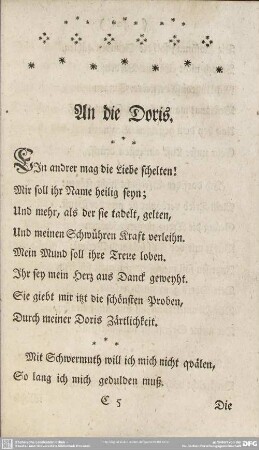 An die Doris.
EIn andrer mag die Liebe schelten!
Mir soll ihr Name heilig seyn;
Und mehr, als der sie tadelt, gelten,
Und meinen Schwühren Kraft verleihn.
Mein Mund soll ihre Treue loben.
Ihr sey mein Herz aus Danck geweyht.
Sie giebt mir itzt die schönsten Proben,
Durch meiner Doris Zärtlichkeit.
Mit Schwermuth will ich mich nicht qvälen,
So lang ich mich gedulden muß.
C 5
Die
DFG